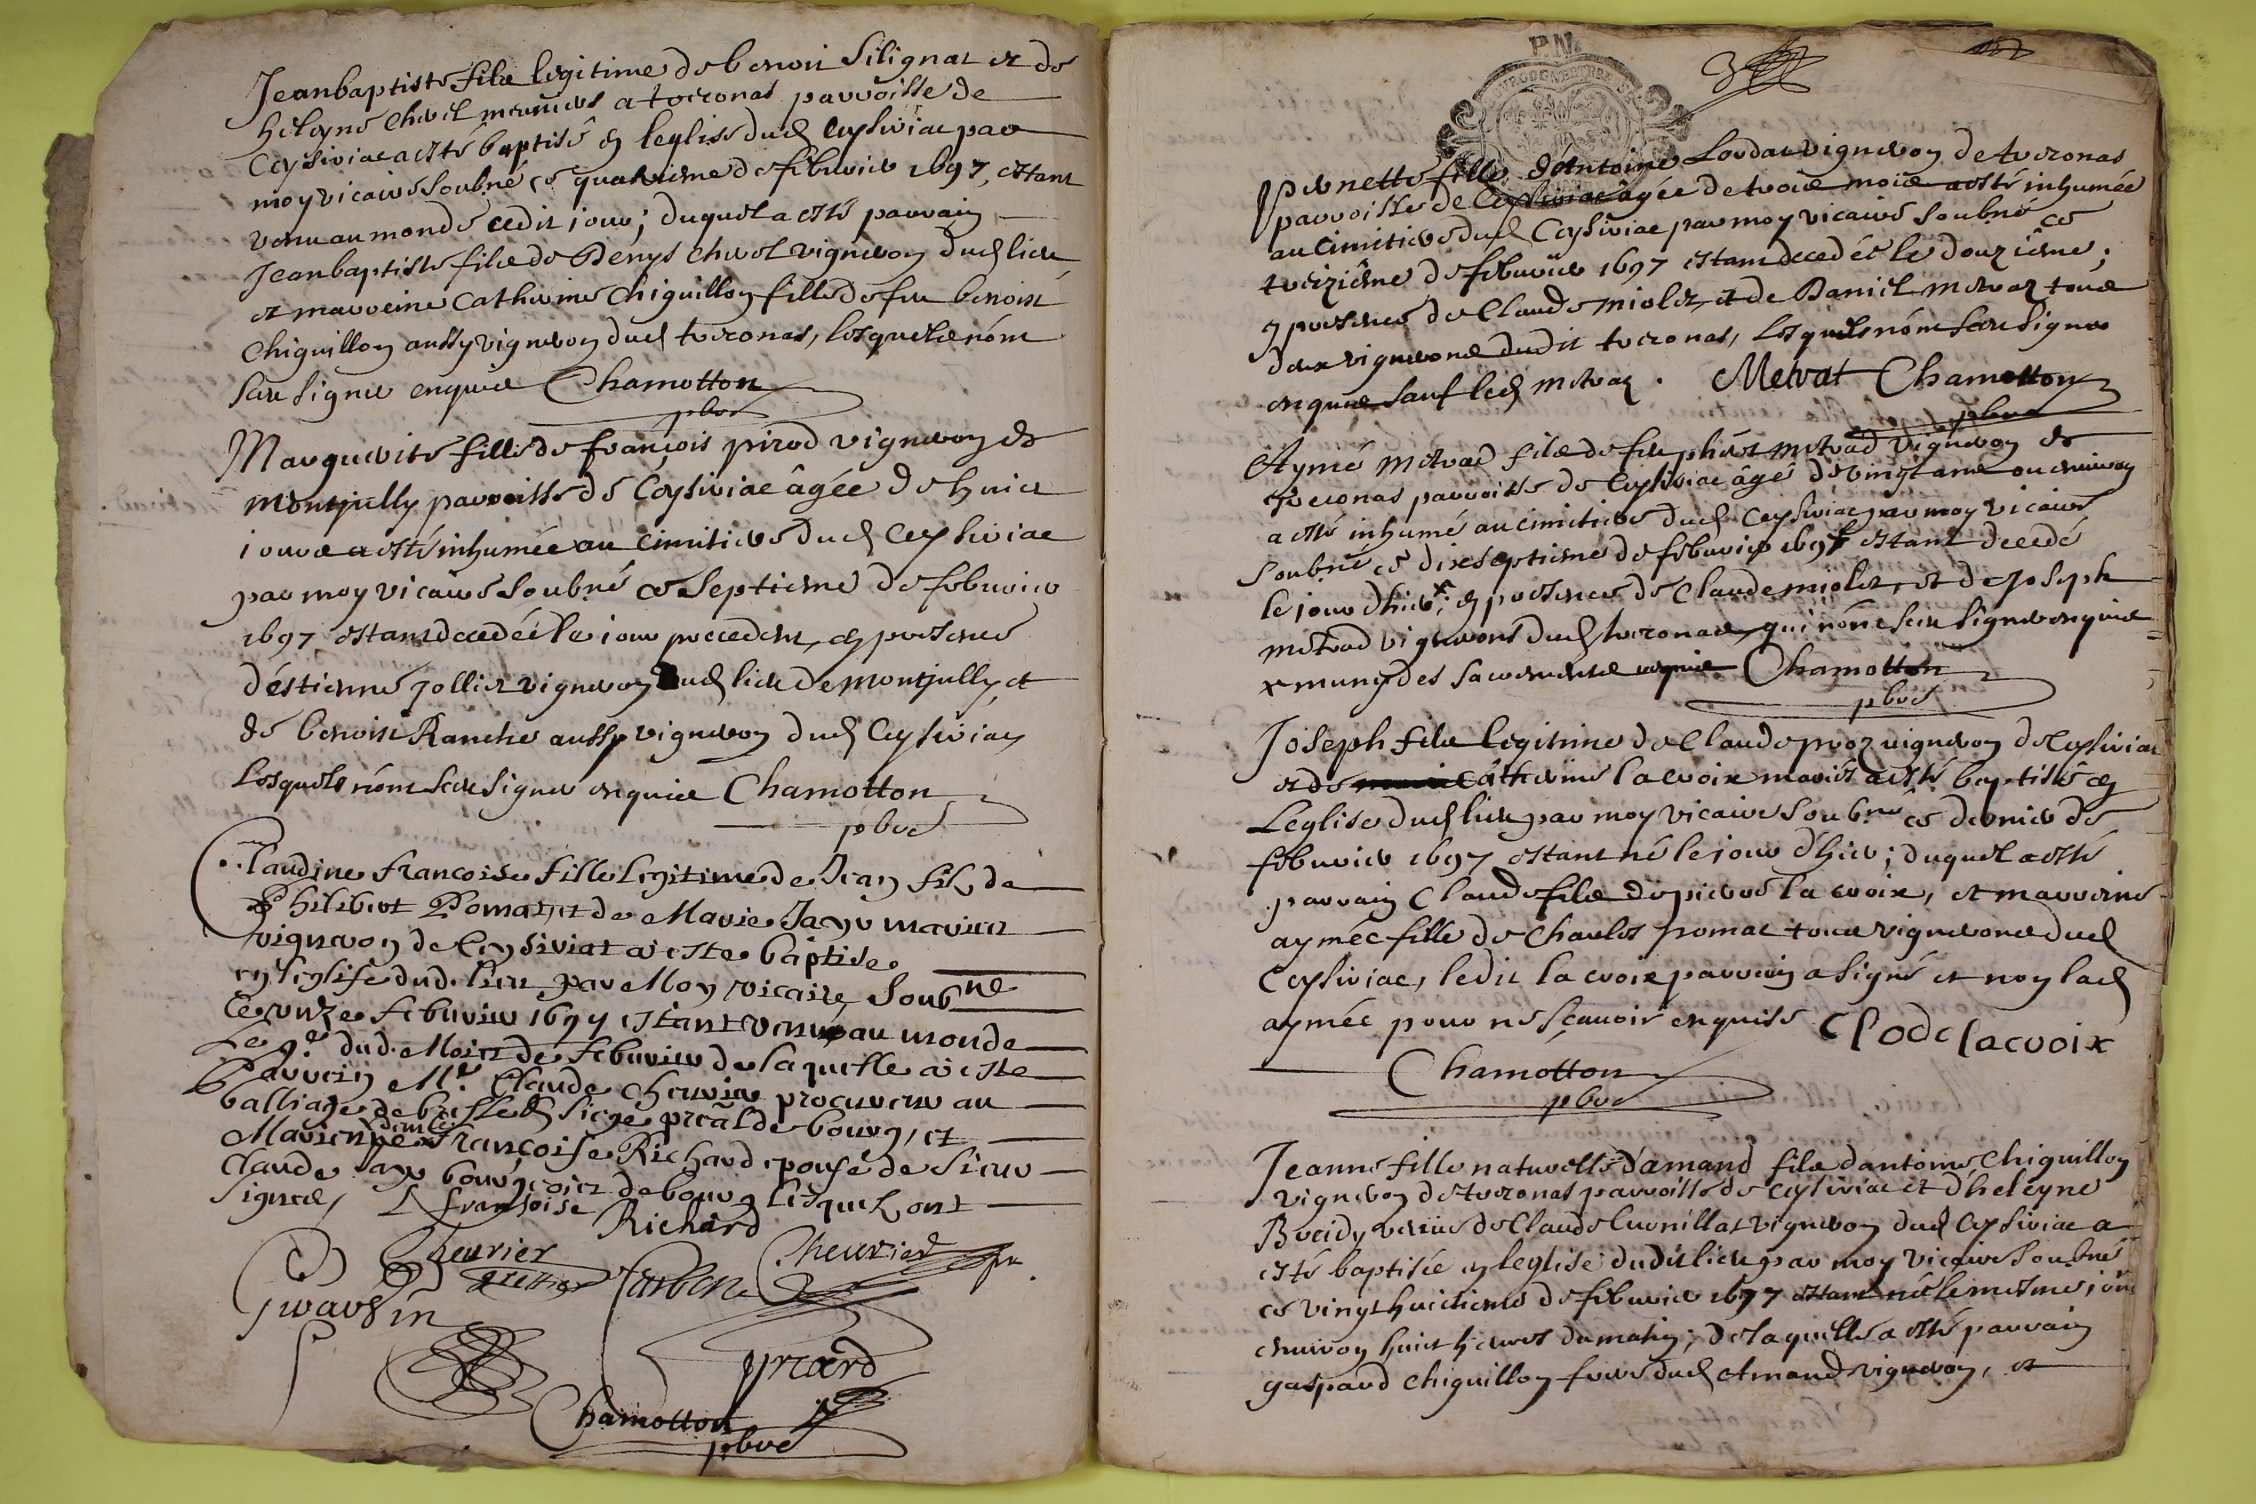 Jeanbaptiste filz legitime de benoit Silignat et de
heleyne chevel mariers a tocronas parroisse de
Ceysiriac a esté baptisé en leglise dud Ceysiriac par
moy vicaire soubné ce quatrieme de febvrier 1697, estant
venu au monde cedit iour; duquel a esté parrain
Jeanbaptiste filz de Denys chevel vigneron dud lieu
et marreine Catherine Chiguillon fille de feu benoist
Chiguillon aussy vigneron dud tocronas, lesquelz nont
sceu signer enquis Chamotton
pbre
Marguerite fille de françois pirod vigneron de
montjully parroisse de Ceysiriac âgée de huict
iours a esté inhumée au cimitiere dud Ceysiriac
par moy vicaire soubné ce septieme de febvrier
1697 estant decedée le iour precedent, en presence
déstienne jollier vigneron dud lieu de montjully et
de benoist Ranche aussy vigneron dud Ceysiriac
lesquels nont sceu signer enquis Chamotton
pbre
Claudine francoise fille legitime de Jean fils de
Philibert Pomat et de Marie Jayr mariers
vigneron de Ceysiriat a este baptise
en leglise dud. lieu par Moy vicaire Soubné
Ce unze febvrier 1697 estant venue au monde
Le 9e dud. Mois de febvrier de laquelle a este
Parrein Mr. Claude Chevrier procureur au
balliage de bresse et siege preâl de bourg, et
Marienne demlle françoise Richard epouse de sieur
Claude Jayr bourgeois de bourg lesquels ont
signez, L françoise Richard
Chevrier Chevrier
Gwarsin
Chamotton
pbre
P. N.
3
pernette fille d'Antoine Lordat vigneron de tocronas
parroisse de Ceysiriac âgée de trois mois a esté inhumée
au cimitiere dud Ceysiriac par moy vicaire soubné ce
treizième de febvrier 1697 estant decedée le douzieme;
en presence de Claude miolet, et de Daniel metrat tous
deux vignerons dudit tocronas, lesquels nont sceu signer
enquis sauf led metrat. Metrat Chamotton
pbre
Aymé metrad filz de feu phibert metrad vigneron de
tocronas parroisse de Ceysiriac âgé de vingt ans ou environ
a esté inhumé au cimitiere dud Ceysiriac par moy vicaire
soubné ce dixseptieme de febvrier 1697 estant decedé
le iour d'hier x; en presence de Claude miolet, et de Joseph
metrad vignerons dud tocronas, qui nont sceu signer enquis
x muny des sacrements enquis Chamotton
pbre
Joseph filz legitime de Claude proz vigneron de Ceysiriac
et de câtherine la croix mariés a esté baptisé en
Leglise dud lieu par moy vicaire soubné ce dernier de
febvrier 1697 estant né le iour d'hier; duquel a esté
parrain Claude filz de pierre la croix, et marreine
aymée fille de Charles pomat tous vignerons dud
Ceysiriac, ledit la croix parrain a signé et non lad
aymée pour ne sçavoir enquise Clode lacroix
Chamotton
pbre
Jeanne fille naturelle d'amand filz dantoine Chiguillon
vigneron de tocronas parroisse de Ceysiriac et d'heleyne
Broidy vefve de Claude Cuvnillat vigneron dud Ceysiriac a
esté baptisée en leglise dudit lieu par moy vicaire soubné
ce vingthuictieme de febvrier 1697 estant née le mesme iour
environ huict heures du matin; de laquelle a esté parrain
gaspard Chiguillon frere dud Amand vigneron, et